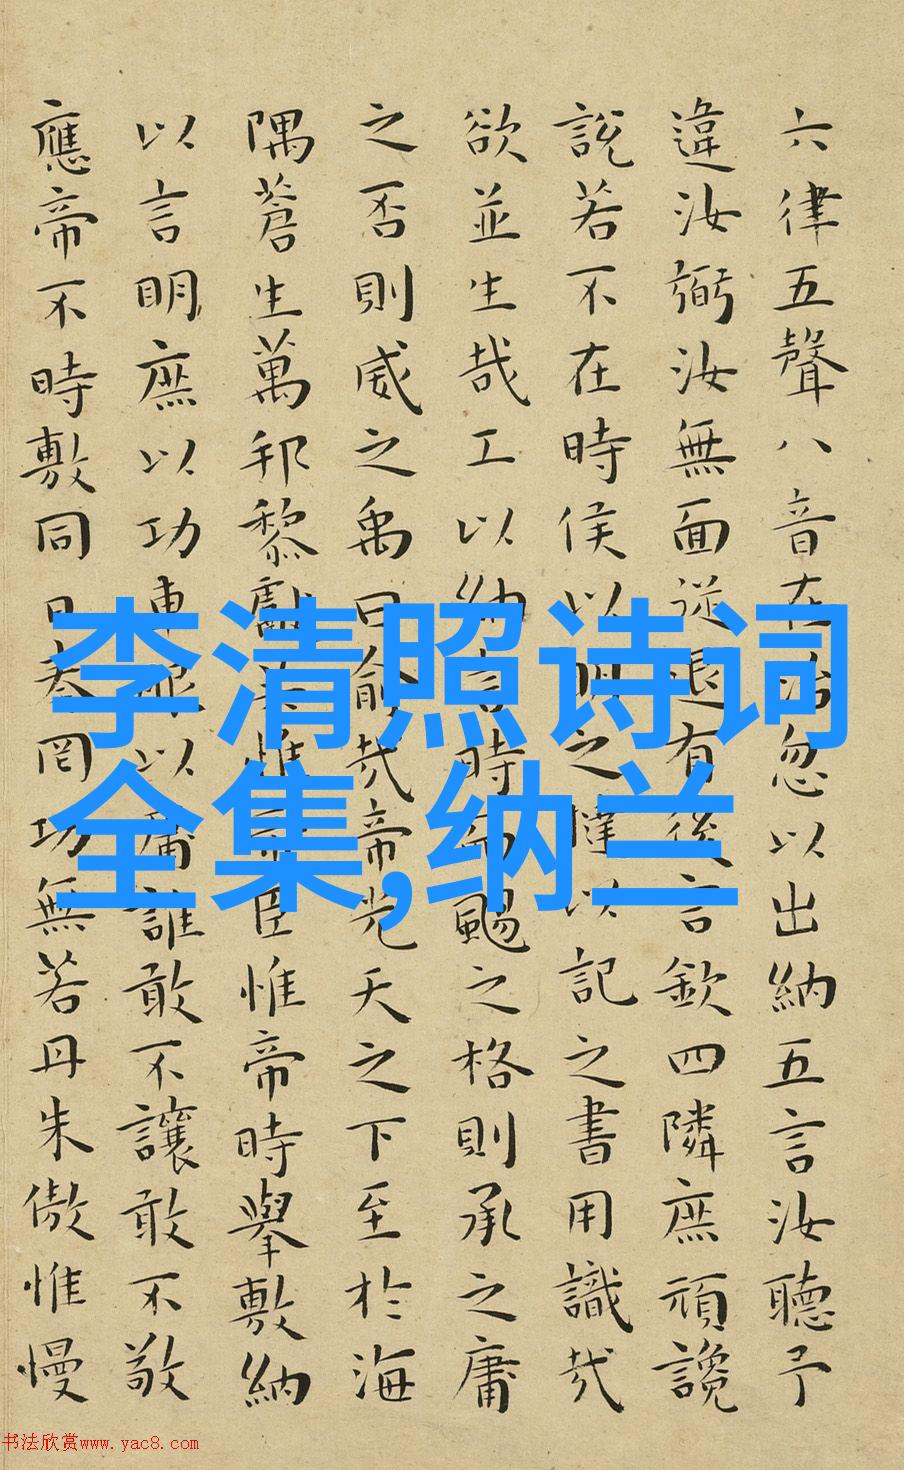 六律五聲八音在治忽以出納五言汝聽予
違汝弼汝無面從退有後言欽四隣庶頑讒
說若不在時侯以明之撻以記之書用識哉
欲並生哉工以納言時而颺之格則承之庸
之否則威之禹曰俞哉帝光天之下至於海
隅蒼生萬邦黎獻共惟帝臣惟帝時舉敷納
以言明庶以功車服以庸誰敢不讓敢不敬
應帝不時敷同日奏罔功無若丹朱傲惟慢
李清照诗词
全集,纳兰
书法欣赏www.yac8.com